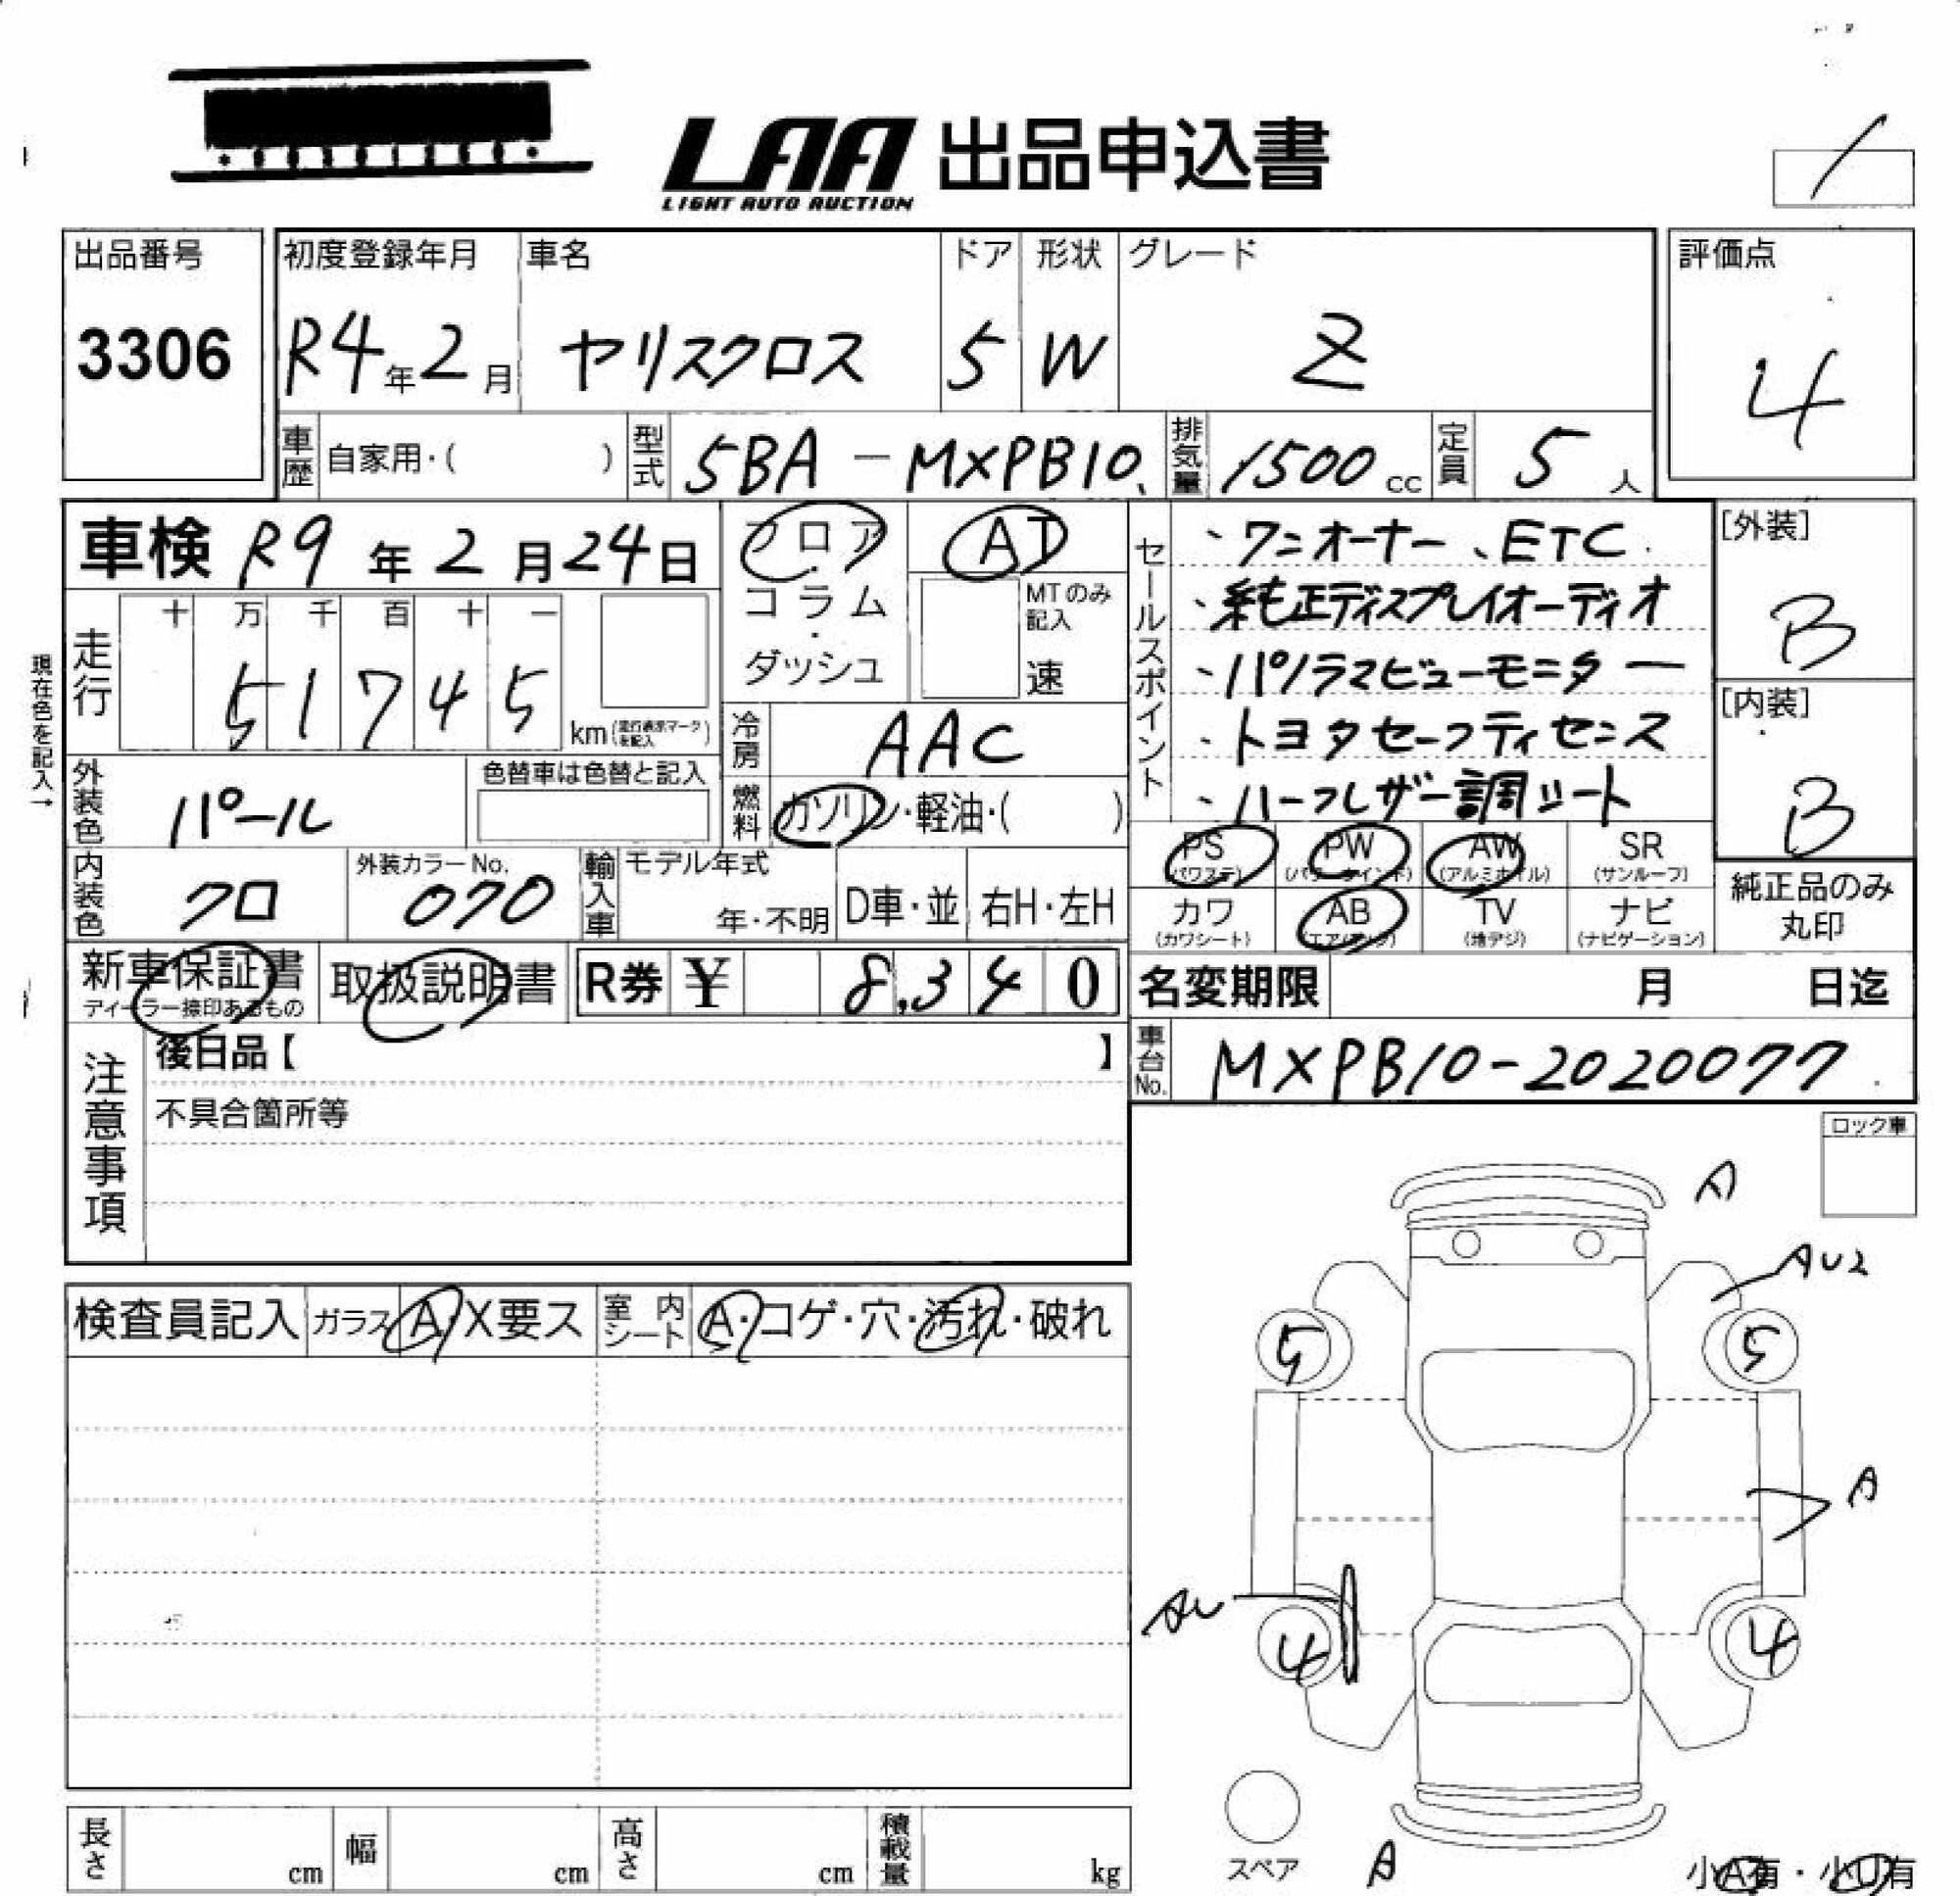 LAA 出品申込書
LIGHT AUTO AUCTION
出品番号 3306
初度登録年月 R4年2月
車名 ヤリスクロス
ドア 5
形状 W
グレード Z
評価点 4
車歴 自家用・( )
型式 5BA-MXPB10
排気量 1500cc
定員 5人
車検 R9年2月24日
フロア
コラム
ダッシュ
AT
MTのみ記入
速
現在色を記入→
走行 十 万 千 百 十 一
51745 km(走行表示マークを記入)
冷房 AAC
燃料 ガソリン・軽油・( )
外装色 パール
色替車は色替と記入
内装色 クロ
外装カラーNo. 070
輸入車 モデル年式 年・不明
D車・並 右H・左H
セールスポイント
・ワンオーナー、ETC
・純正ディスプレイオーディオ
・パノラマビューモニター
・トヨタセーフティセンス
・ハーフレザー調シート
[外装] B
[内装] B
PS (パワステ) PW (パワーウインド) AW (アルミホイル) SR (サンルーフ)
カワ (カワシート) AB (エアバッグ) TV (地デジ) ナビ (ナビゲーション)
純正品のみ丸印
新車保証書 ディーラー捺印あるもの
取扱説明書
R券 ¥ 8,340
名変期限 月 日迄
車台No. MXPB10-2020077
注意事項
後日品【 】
不具合箇所等
ロック車
検査員記入 ガラス A・X要ス
室内シート A・コゲ・穴・汚れ・破れ
A
AU2
5 5
A
AU
4 4
スペア
A
小A有・小U有
長さ cm 幅 cm 高さ cm 積載量 kg